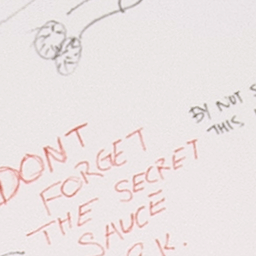 DONT
FORGET
THE SECRET
SAUCE
BY NOT
THIS